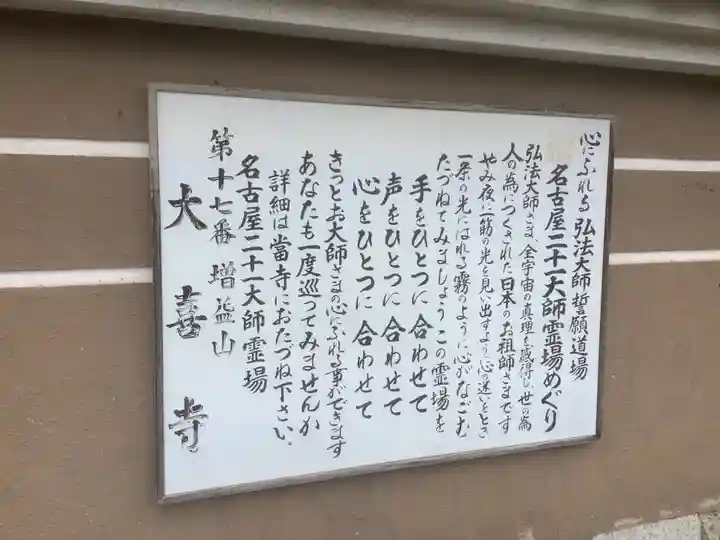 心にふれる 弘法大師誓願道場
名古屋二十一大師霊場めぐり
弘法大師さま、全宇宙の真理を感得し、世の為
人の為につくされた日本のお祖師さまです
やみ夜に一筋の光を見い出すように心の迷いをとき
一条の光にはれる霧のように心がなごむ
たづねてみましょうこの霊場を
手をひとつに合わせて
声をひとつに合わせて
心をひとつに合わせて
きっとお大師さまの心にふれる事ができます
あなたも一度巡ってみませんか
詳細は當寺におたづね下さい。
名古屋二十一大師霊場
第十七番 増益山
大喜寺